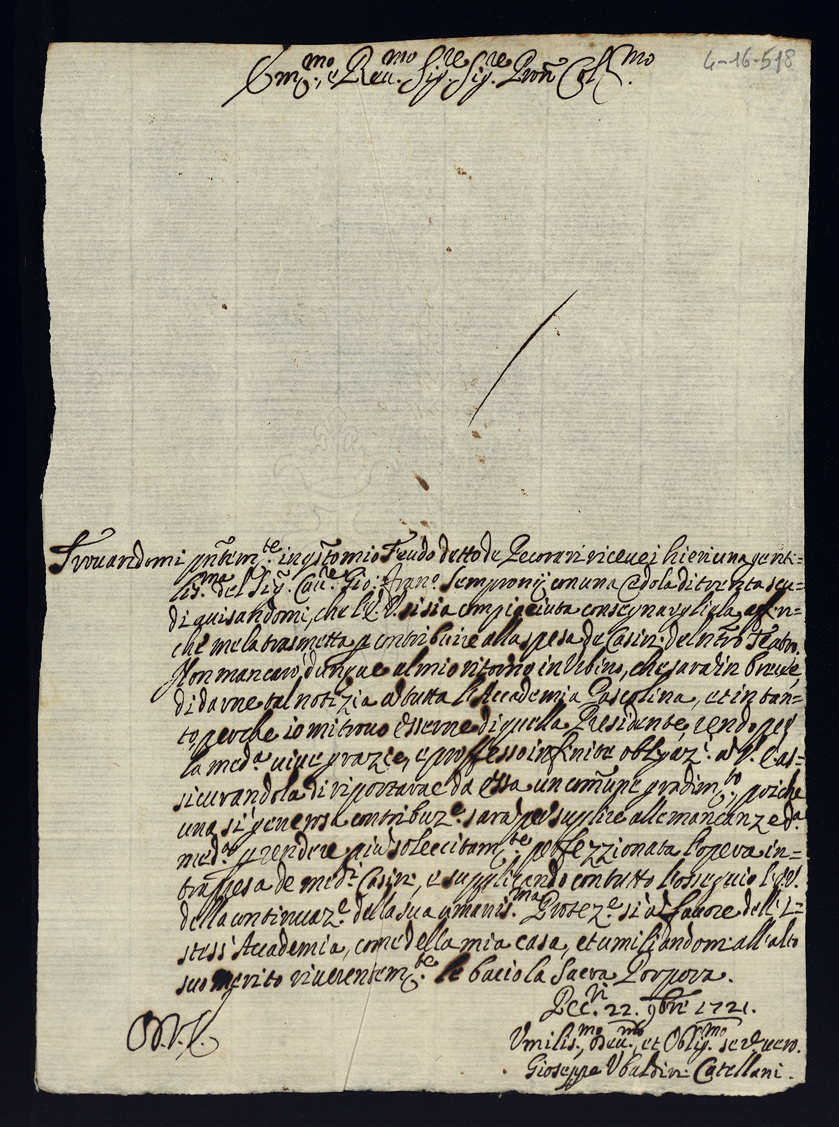 4-16-518
Em.mo e Reu.mo Sig.re Sig.re Pron Col.mo
Trouandomi pntem.te in qsto mio Feudo detto de Pecorari riceuei hieri una genti=
lis.ma del Sig. Cau.re Gio: Fran.o Sempronij con una cedola di trenta scu=
di auisandomi, che l'E. V. si sia compiaciuta consegnargliela, affin=
che me la trasmetta p contribuire alla spesa de Casini del nro Teatro.
Non mancarò dunque al mio ritorno in Urbino, che sarà in breue
di darne tal notizia a tutta l'Accademia Pascolina, et in tan=
to, perche io mi trouo esserne di quella Presidente, rendo per
la med.a uiue grazie, e professo infinite obligaz.i a V. E. as=
sicurandola di riportarne da essa un comune gradim.to, poiche
una si generosa contribuz.e sarà per supplire alle mancanze d.a
med.a p rendere più solecitam.te perfezzionata l'opera in=
trappresa de med.i Casini, e supplicando con tutto l'ossequio l'E. V.
della continuaz.e della sua umanis.ma Protez.e si a fauore dell' I=
stess' Accademia, come della mia casa, et umiliandomi all'alto
suo merito riuerentem.te le bacio la Sacra Porpora.
Pec.ri 22. 9bre 1721.
Umilis.mo, Deu.mo, et Oblig.mo seru.re uero.
Gioseppe Ubaldini Catellani.